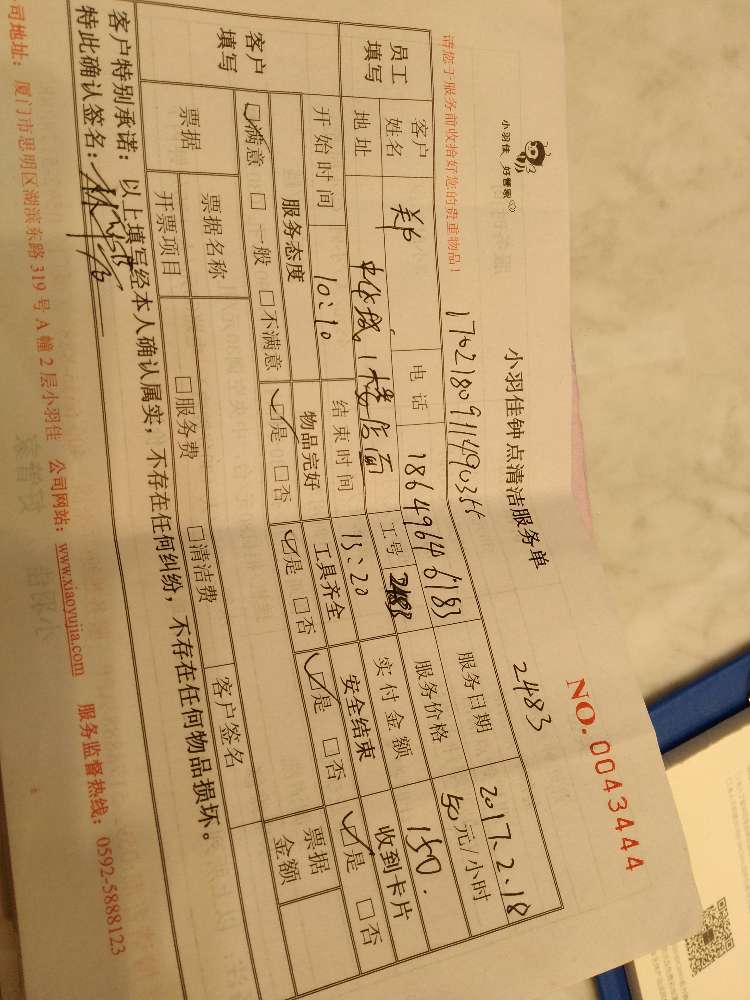 小羽佳 好管家
小羽佳钟点清洁服务单
NO.0043444
2483
请您于服务前收拾好您的贵重物品！
17021809111490355
员工填写 客户姓名 郑 电话 18649646183 服务日期 2017.2.18
地址 1楼后面 工号 2483 服务价格 50元/小时
开始时间 10:10 结束时间 13:20 实付金额 150.
客户填写 服务态度 物品完好 工具齐全 安全结束 收到卡片
☑满意 □一般 □不满意 ☑是 □否 ☑是 □否 ☑是 □否 ☑是 □否
票据 票据名称 □服务费 □清洁费 客户签名 票据金额
开票项目
客户特别承诺：以上填写经本人确认属实，不存在任何纠纷，不存在任何物品损坏。
特此确认签名：
司地址：厦门市思明区湖滨东路319号A幢2层小羽佳 公司网站：www.xiaoyujia.com 服务监督热线：0592-5888123